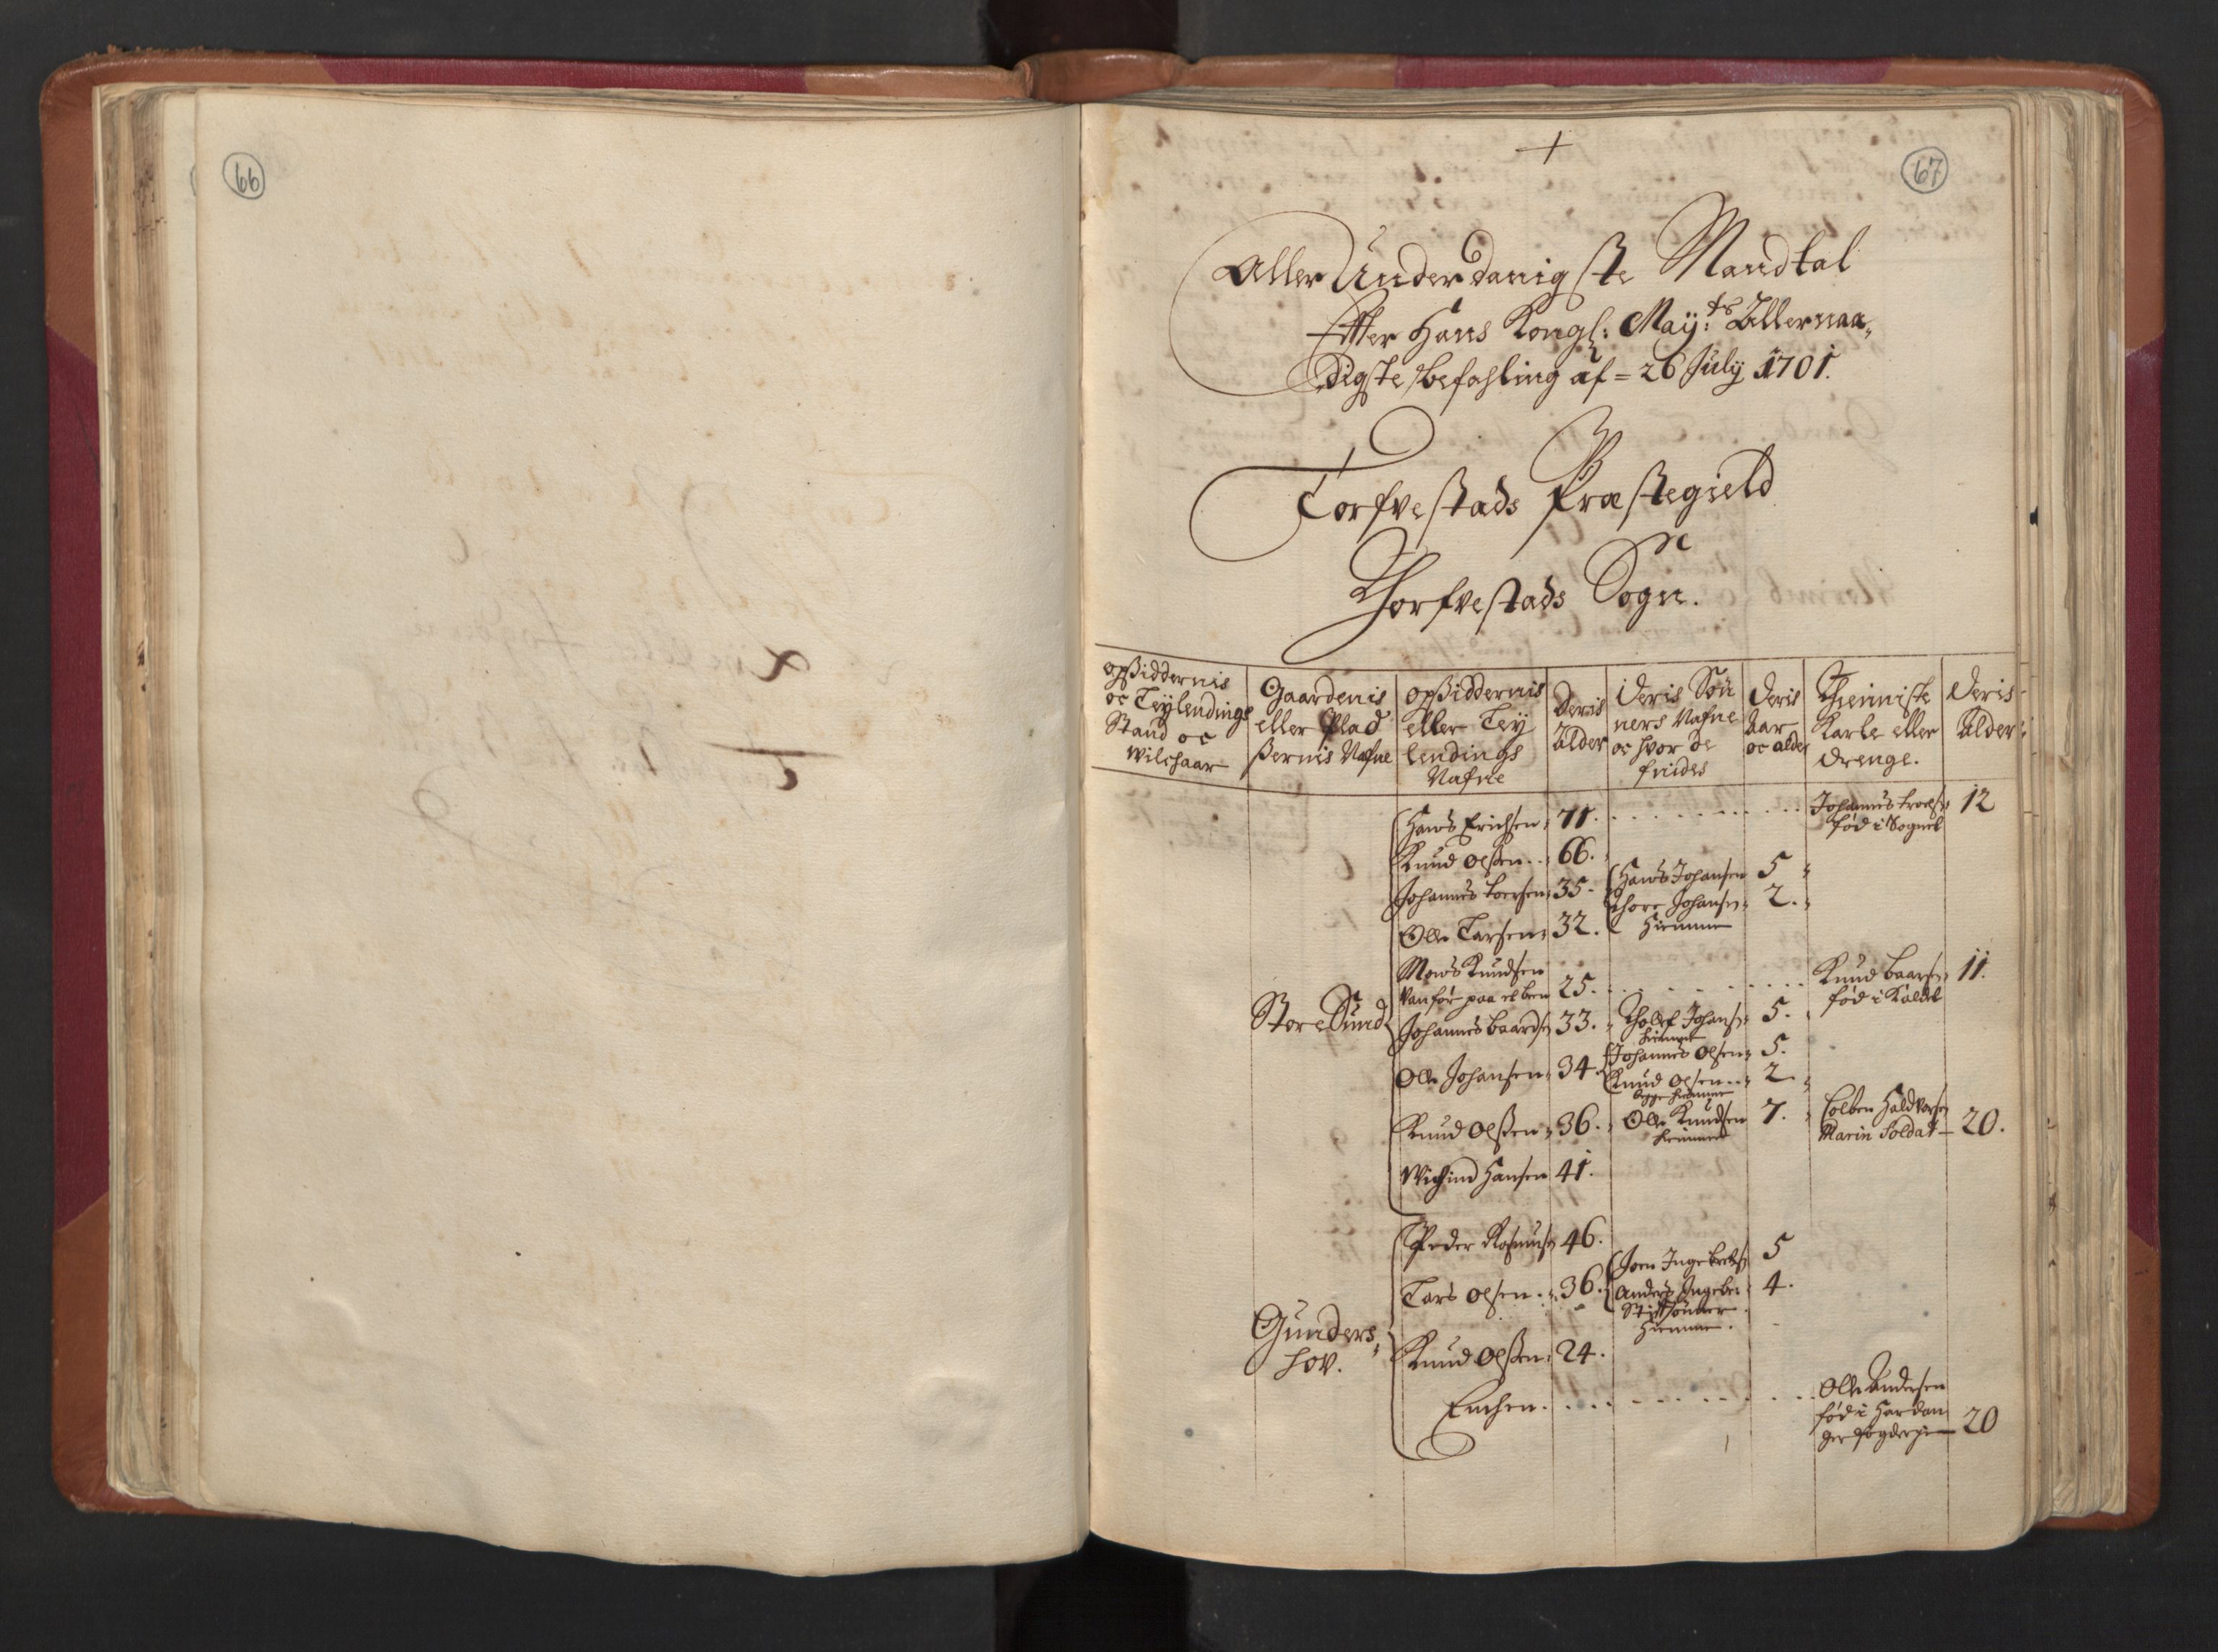 66
67
Aller Underdanigste Mandtal
Efter Hans Kongl: Maÿ:ts Allernaa„
digste befahling af = 26 Julÿ 1701.
Torfvestads Præstegield
Thorfvestads Sogn.
opsiddernis oc Leÿlendings Stand oc Wilchaar
Gaardenis eller Pladsernis Nafne
opsiddernis eller Leÿlendings Nafne
Deris Alder
Deris Sönners Nafne oc hvor de findes
Deris Aar oc alder
Thienniste Karle eller Drenge.
Deris Alder:
Hans Erichsen 71. Johannes
fød i Sognet 12
Knud Olsen 66.
Johannes 35. Hans Johansen 5
Thore Johansn 2.
Hiemme
Olle Larsen 32.
Mons Knudsen
Vanför paa et been 25. Knud Baarsn 11.
fød i
Store Sund
Johannes Baardsn 33. Johansn 5.
Hiemme
Olle Johansen 34. Johannes Olsen 5.
Knud Olsen 2
begge hiemme
Knud Olsen 36. Olle Knudsen 7.
hiemme
Colben Haldvorsn
Marin Soldat 20.
Wichind Hansen 41.
Peder Rasmusn 46.
Lars Olsen 36. Joen Ingebretsn 5
Anders Ingebre 4.
Stifsönner
Hiemme.
Gunders„
hov.
Knud Olsen 24.
Enchen.
Olle Andersen
fød i Hardan
ger fogderie 20